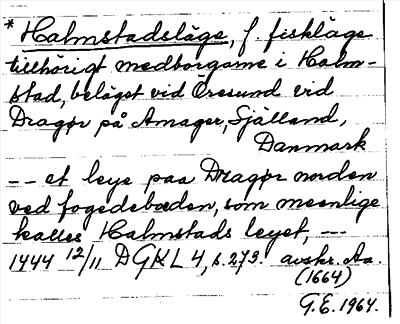 * Halmstadsläge, f. fiskläge
tillhörigt medborgarne i Halm-
stad, beläget vid Öresund vid
Dragør på Amager, Själland,
Danmark
-- et leye paa Dragør norden
ved fogedeboden, som meenlige
kalles Halmstads leyet, --
1444 12/11 DGKL 4, s. 273. avskr. Aa.
(1664)
G.E. 1964.